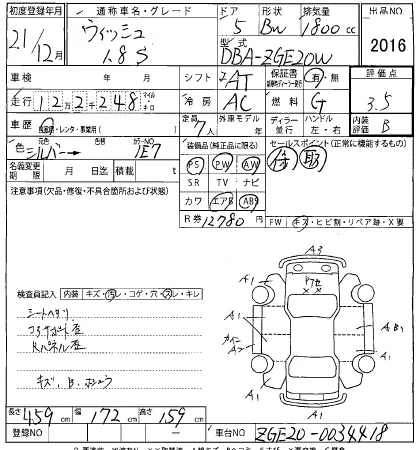 初度登録年月 通称車名・グレード ドア 形状 排気量 出品NO.
21/12月 ウィッシュ 1.8S 5 Bw 1800cc 2016
型式 DBA-ZGE20W
車検 年 月 シフト AT 保証書 有・無 評価点
走行 122248 マイル キロ 冷房 AC 燃料 G 3.5
車歴 自家用・レンタ・事業用( ) 定員 7人 外車モデル 年 ディーラー 並行 ハンドル 左・右 内装 評価 B
色 元色 シルバー→ 色替 カラーNO 1E7 装備品(純正品に限る) セールスポイント(正常に機能するもの)
PS PW AW 徐 取
名義変更期限 月 日 積載 t SR TV ナビ
注意事項(欠品・修復・不具合箇所および状態) カワ エアB ABS
R券 12780 円 FW キズ・ヒビ割・リペア跡・X要
A3
A1 A1
検査員記入 内装 キズ・汚レ・コゲ・穴・スレ・キレ
シートヘタリ
A B1
Rパネル歪
A1 A1
キズ、B、
A1
長さ 459cm 幅 172cm 高さ 159cm
登録NO 車台NO ZGE20-0034418